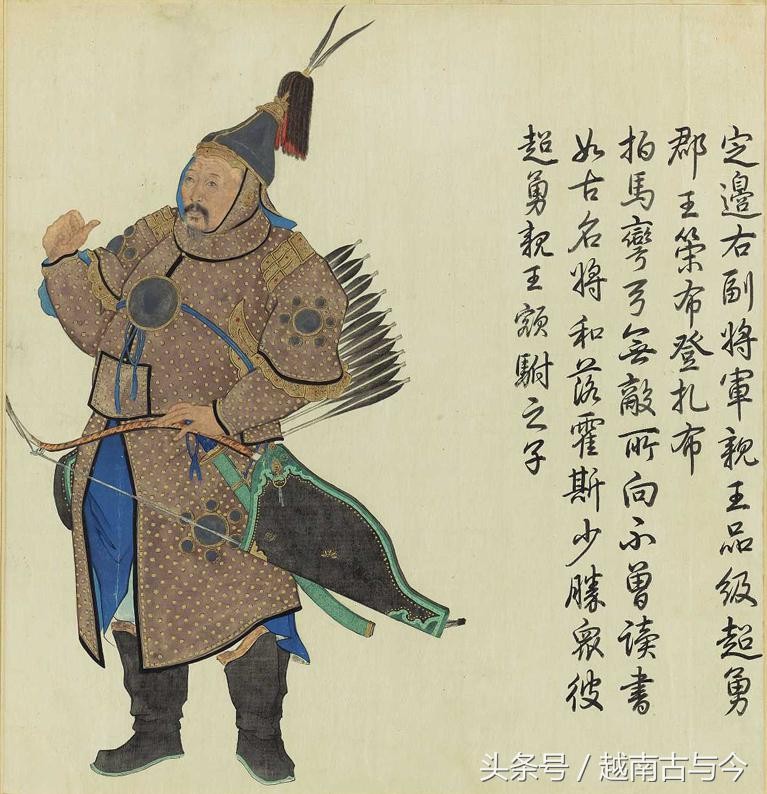 定邊右副將軍親王品級超勇
郡王策布登扎布
拍馬彎弓無敵所向不曾讀書
如古名將和落霍斯少勝衆彼
超勇親王額駙之子
头条号 / 越南古与今